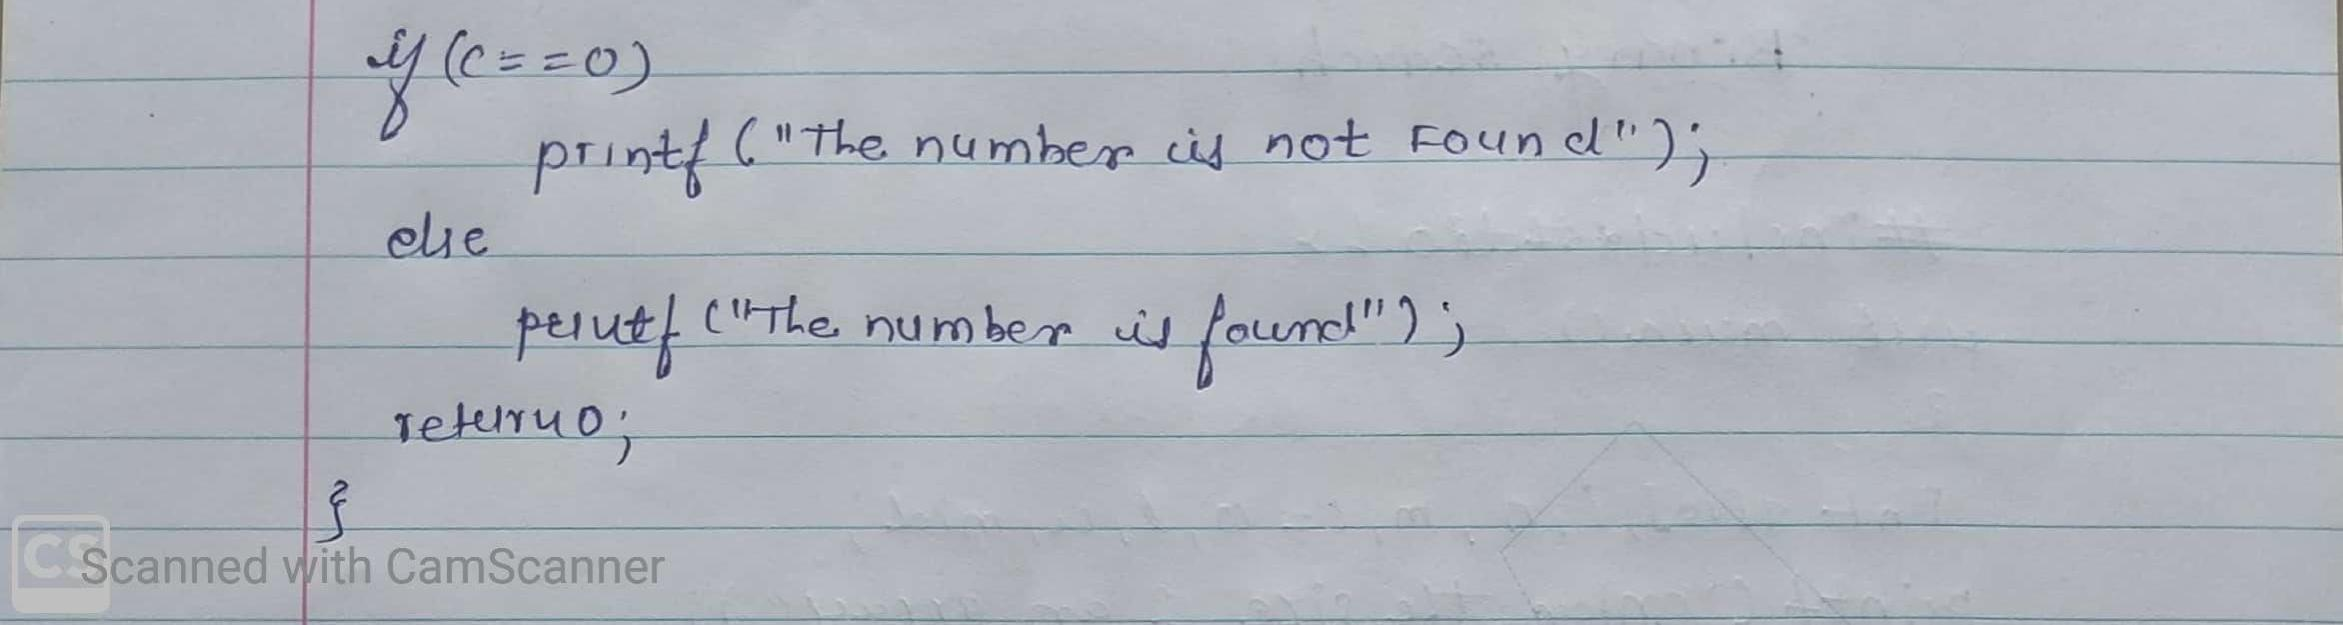 if (c==0)
printf ("The number is not Found");
else
printf ("The number is found");
return 0;
}
CS Scanned with CamScanner